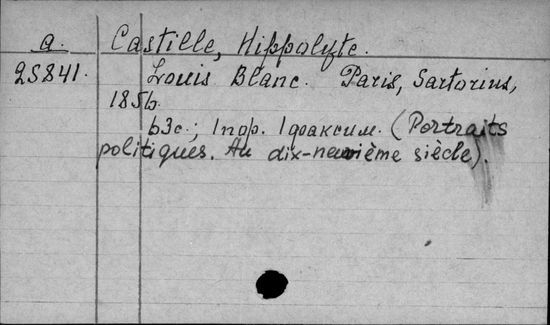 a. Castille, Hippolyte.
25841. Louis Blanc. Paris, Sartorius,
1856.
63с.; 1пор. 1факсим. (Portraits
politiques. Au dix-neuvième siècle).